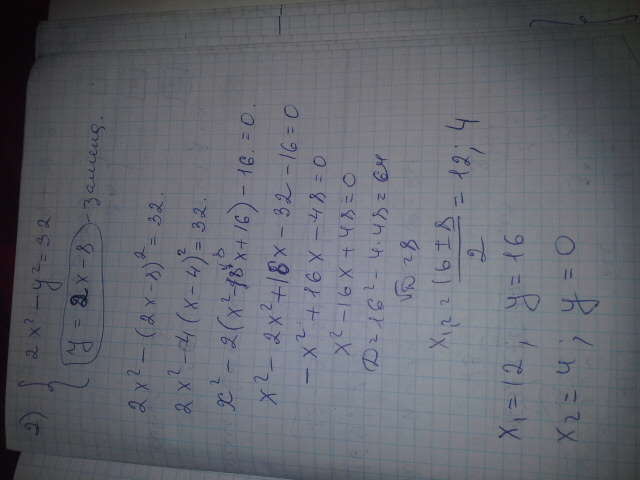 2) { 2x² - y² = 32
y = 2x - 8 - замена.
2x² - (2x - 8)² = 32.
2x² - 4(x - 4)² = 32.
x² - 2(x² - 8x + 16) - 16 = 0.
x² - 2x² + 16x - 32 - 16 = 0
- x² + 16x - 48 = 0
x² - 16x + 48 = 0
D = 16² - 4·48 = 64
√D = 8
x₁,₂ = (16 ± 8)/2 = 12; 4
x₁ = 12; y = 16
x₂ = 4; y = 0